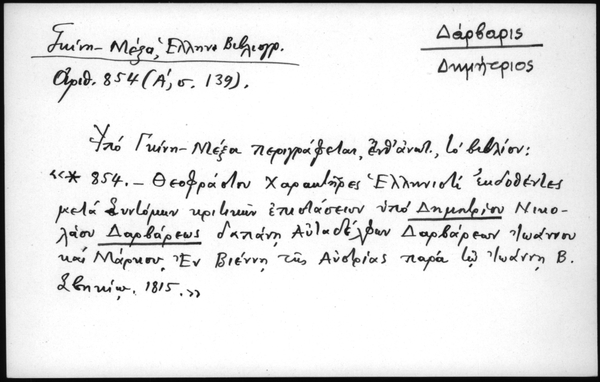 Γκίνη-Μέξα, Ἑλλην. Βιβλιογρ.
Δάρβαρις
Δημήτριος
ἀριθ. 854 (Α', σ. 139).
Ὑπό Γκίνη-Μέξα περιγράφεται, ἔνθ' ἀνωτ., τό βιβλίον:
«* 854. — Θεοφράστου Χαρακτῆρες Ἑλληνιστί ἐκδοθέντες
μετά Συντόμων κριτικῶν ἐπιστάσεων ὑπό Δημητρίου Νικο-
λάου Δαρβάρεως δαπάνῃ Αὐταδέλφων Δαρβάρεων Ἰωάννου
καί Μάρκου, Ἐν Βιέννῃ τῆς Αὐστρίας παρά τῷ Ἰωάννῃ Β.
Σβηκίῳ. 1815.»